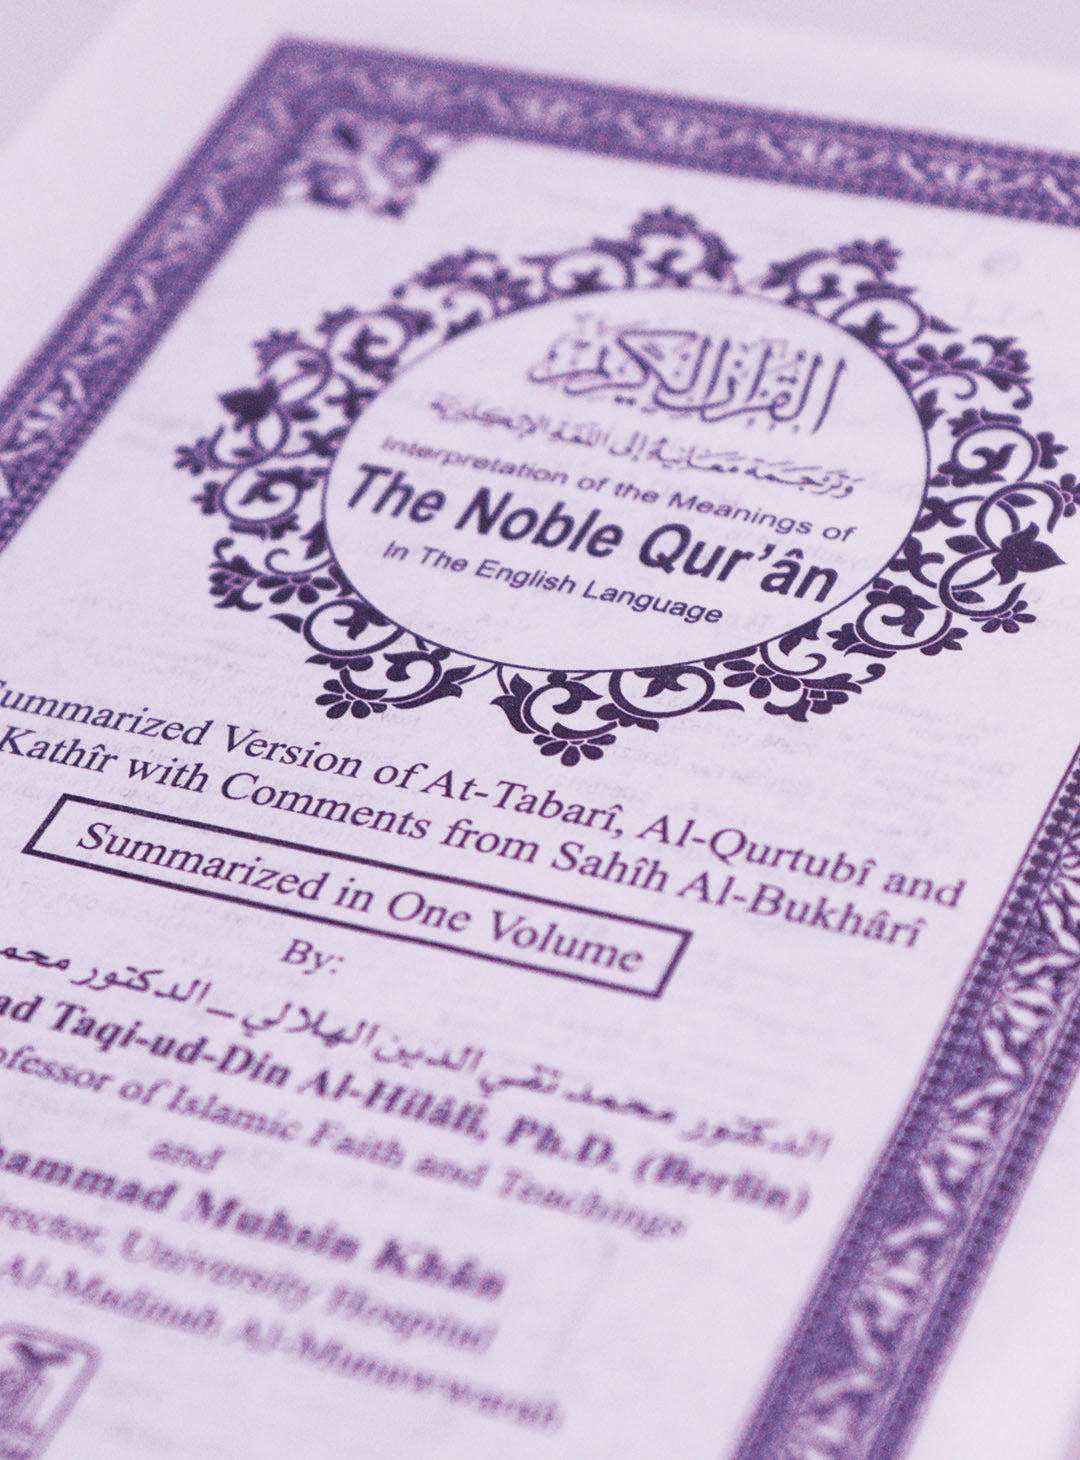 القرآن الكريم
وترجمة معانيه إلى اللغة الإنجليزية
Interpretation of the Meanings of
The Noble Qur'ân
In The English Language
Summarized Version of At-Tabarî, Al-Qurtubî and
Kathîr with Comments from Sahîh Al-Bukhârî
Summarized in One Volume
By:
الدكتور محمد تقي الدين الهلالي _ الدكتور
Taqi-ud-Din Al-Hilâlî, Ph.D. (Berlin)
of Islamic Faith and Teachings
and
Muhsin Khân
University Hospital
Al-Madinah Al-Munawwarah